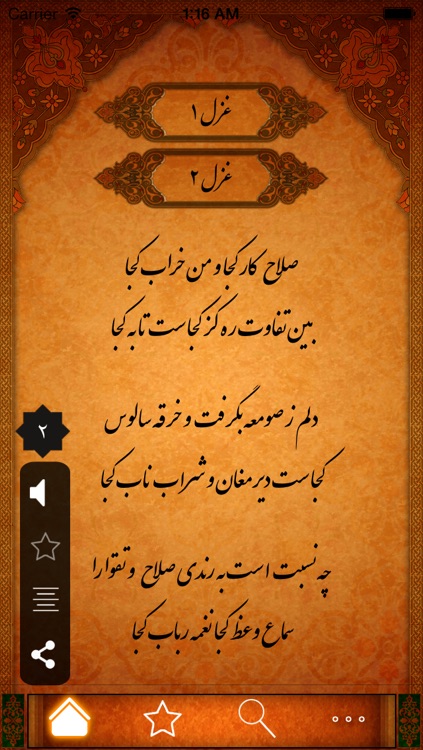 Carrier 1:16 AM
غزل ۱
غزل ۲
صلاح کار کجا و من خراب کجا
ببین تفاوت ره کز کجاست تا به کجا
دلم ز صومعه بگرفت و خرقه سالوس
کجاست دیر مغان و شراب ناب کجا
چه نسبت است به رندی صلاح و تقوا را
سماع وعظ کجا نغمه رباب کجا
۲